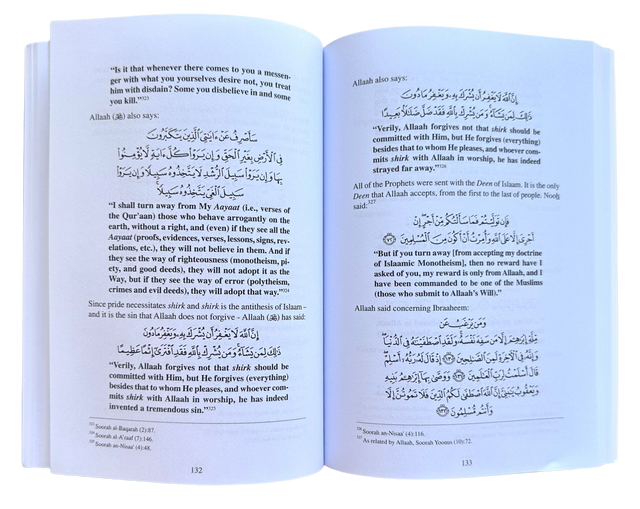 "Is it that whenever there comes to you a messen-
ger with what you yourselves desire not, you treat
him with disdain? Some you disbelieve in and some
you kill."323
Allaah (ﷻ) also says:
سَأَصْرِفُ عَنْ ءَايَٰتِيَ ٱلَّذِينَ يَتَكَبَّرُونَ
فِي ٱلْأَرْضِ بِغَيْرِ ٱلْحَقِّ وَإِن يَرَوْا۟ كُلَّ ءَايَةٍ لَّا يُؤْمِنُوا۟
بِهَا وَإِن يَرَوْا۟ سَبِيلَ ٱلرُّشْدِ لَا يَتَّخِذُوهُ سَبِيلًا وَإِن يَرَوْا۟
سَبِيلَ ٱلْغَيِّ يَتَّخِذُوهُ سَبِيلًا
"I shall turn away from My Aayaat (i.e., verses of
the Qur'aan) those who behave arrogantly on the
earth, without a right, and (even) if they see all the
Aayaat (proofs, evidences, verses, lessons, signs, rev-
elations, etc.), they will not believe in them. And if
they see the way of righteousness (monotheism, pi-
ety, and good deeds), they will not adopt it as the
Way, but if they see the way of error (polytheism,
crimes and evil deeds), they will adopt that way."324
Since pride necessitates shirk and shirk is the antithesis of Islaam -
and it is the sin that Allaah does not forgive - Allaah (ﷻ) has said:
إِنَّ ٱللَّهَ لَا يَغْفِرُ أَن يُشْرَكَ بِهِۦ وَيَغْفِرُ مَا دُونَ
ذَٰلِكَ لِمَن يَشَآءُ وَمَن يُشْرِكْ بِٱللَّهِ فَقَدِ ٱفْتَرَىٰٓ إِثْمًا عَظِيمًا
"Verily, Allaah forgives not that shirk should be
committed with Him, but He forgives (everything)
besides that to whom He pleases, and whoever com-
mits shirk with Allaah in worship, he has indeed
invented a tremendous sin."325
323 Soorah al-Baqarah (2):87.
324 Soorah al-A'raaf (7):146.
325 Soorah an-Nisaa' (4):48.
132
Allaah also says:
إِنَّ ٱللَّهَ لَا يَغْفِرُ أَن يُشْرَكَ بِهِۦ وَيَغْفِرُ مَا دُونَ
ذَٰلِكَ لِمَن يَشَآءُ وَمَن يُشْرِكْ بِٱللَّهِ فَقَدْ ضَلَّ ضَلَٰلًۢا بَعِيدًا
"Verily, Allaah forgives not that shirk should be
committed with Him, but He forgives (everything)
besides that to whom He pleases, and whoever com-
mits shirk with Allaah in worship, he has indeed
strayed far away."326
All of the Prophets were sent with the Deen of Islaam. It is the only
Deen that Allaah accepts, from the first to the last of people. Nooh
said:327
فَإِن تَوَلَّيْتُمْ فَمَا سَأَلْتُكُم مِّنْ أَجْرٍ إِنْ
أَجْرِىَ إِلَّا عَلَى ٱللَّهِ وَأُمِرْتُ أَنْ أَكُونَ مِنَ ٱلْمُسْلِمِينَ ﴿٧٢﴾
"But if you turn away [from accepting my doctrine
of Islaamic Monotheism], then no reward have I
asked of you, my reward is only from Allaah, and I
have been commanded to be one of the Muslims
(those who submit to Allaah's Will)."
Allaah said concerning Ibraaheem:
وَمَن يَرْغَبُ عَن
مِّلَّةِ إِبْرَٰهِـۧمَ إِلَّا مَن سَفِهَ نَفْسَهُۥ وَلَقَدِ ٱصْطَفَيْنَٰهُ فِي ٱلدُّنْيَا
وَإِنَّهُۥ فِي ٱلْءَاخِرَةِ لَمِنَ ٱلصَّٰلِحِينَ ﴿١٣٠﴾ إِذْ قَالَ لَهُۥ رَبُّهُۥٓ أَسْلِمْ
قَالَ أَسْلَمْتُ لِرَبِّ ٱلْعَٰلَمِينَ ﴿١٣١﴾ وَوَصَّىٰ بِهَآ إِبْرَٰهِـۧمُ بَنِيهِ
وَيَعْقُوبُ يَٰبَنِيَّ إِنَّ ٱللَّهَ ٱصْطَفَىٰ لَكُمُ ٱلدِّينَ فَلَا تَمُوتُنَّ إِلَّا
وَأَنتُم مُّسْلِمُونَ ﴿١٣٢﴾
326 Soorah an-Nisaa' (4):116.
327 As related by Allaah, Soorah Yoonus (10):72.
133